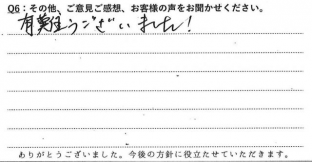 Q6：その他、ご意見ご感想、お客様の声をお聞かせください。
有難うございました!
ありがとうございました。今後の方針に役立たせていただきます。